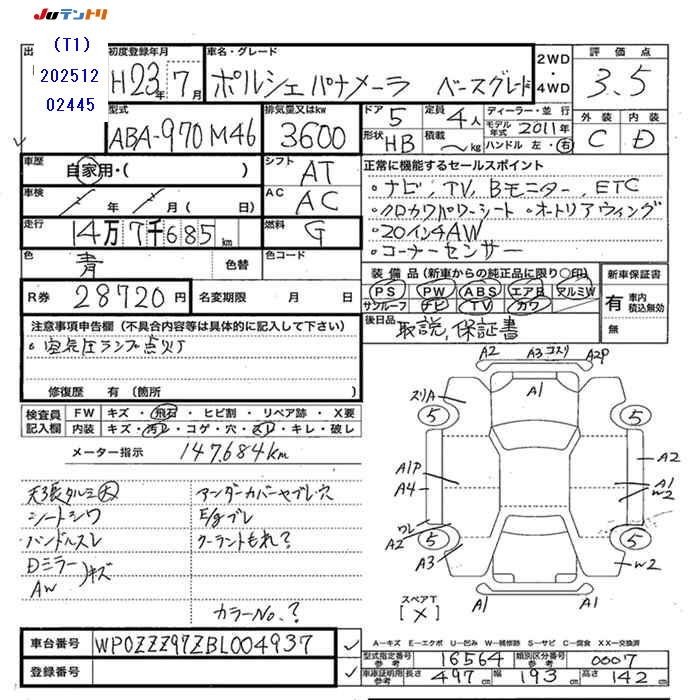 JUテントリ
出
(T1)
202512
02445
初度登録年月
H23年7月
車名・グレード
ポルシェ パナメーラ ベースグレード
2WD
・
4WD
評価点
3.5
型式
ABA-970M46
排気量又はkw
3600
ドア 5
定員 4人
ディーラー・並行
モデル年式 2011年
形状 HB
積載 〜 kg
ハンドル 左・右
外装 内装
C D
車歴
自家用・( )
シフト AT
正常に機能するセールスポイント
・ナビ, TV, Bモニター, ETC
・クロカワパワーシート ・オートリアウィング
・20インチAW
・コーナーセンサー
車検
年 月 ( 日)
AC AC
走行
14万7千685km
燃料 G
色
青
色替
色コード
R券 28720円
名変期限 月 日
装備品(新車からの純正品に限り○印)
PS PW ABS エアB アルミW
サンルーフ ナビ TV カワ
新車保証書
有 車内積込無効
無
後日品
取説, 保証書
注意事項申告欄(不具合内容等は具体的に記入して下さい)
・空気圧ランプ点灯
修復歴 有(箇所 )
検査員記入欄
FW キズ・飛石・ヒビ割・リペア跡・X要
内装 キズ・汚レ・コゲ・穴・スレ・キレ・破レ
メーター指示 147,684km
天張タルミ大
シートシワ
ハンドルスレ
Dミラー
AW
キズ
アンダーカバーヤブレ・穴
E/gブレ
クーラントもれ?
カラーNo.?
A2 A3 コスリ A2P
A1
スリA
5 5
A2
A1P
A4
A1
W2
ワレ
A2
5 5
A3
W2
スペアT
[×]
A1 A1
車台番号 WP0ZZZ97ZBL004937
登録番号
A−キズ E−エクボ U−凹み W−補修跡 S−サビ C−腐食 XX−交換済
型式指定番号 参考 16564
類別区分番号 参考 0007
車庫証明用 参考 長さ 497cm 幅 193cm 高さ 142cm